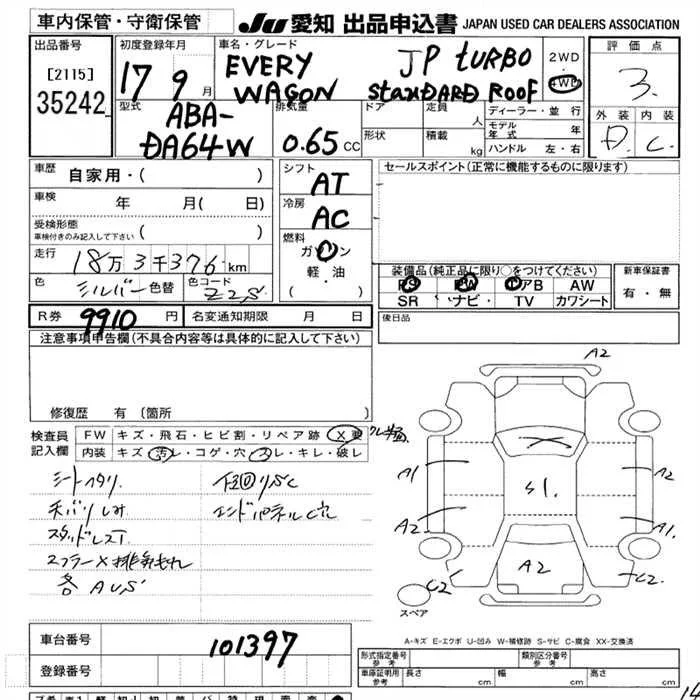 車内保管・守衛保管
JU 愛知 出品申込書 JAPAN USED CAR DEALERS ASSOCIATION
出品番号
[2115]
35242
初度登録年月
17 9月
車名・グレード
EVERY WAGON
JP tURBO
StanDARD ROOF
2WD
4WD
評価点
3.
外装 内装
D. C.
型式
ABA-
DA64W
排気量
0.65 CC
ドア
形状
定員 人
積載 kg
ディーラー・並行
モデル年式 年
ハンドル 左・右
車歴 自家用・( )
車検 年 月( 日)
受検形態
車検付きのみ記入して下さい ( )
走行 18万3千376km
色 シルバー 色替
色コード Z2S
シフト
AT
冷房
AC
燃料
ガソリン
軽・油
セールスポイント(正常に機能するものに限ります)
装備品(純正品に限り○をつけてください)
PS PW エアB AW
SR ナビ・TV カワシート
新車保証書
有・無
後日品
R券 9910円
名変通知期限 月 日
注意事項申告欄(不具合内容等は具体的に記入して下さい)
修復歴 有(箇所
検査員記入欄
FW キズ・飛石・ヒビ割・リペア跡 X要
内装 キズ・汚レ・コゲ・穴・スレ・キレ・破レ
シートヘタリ
天バリしみ
スタッドレスT
マフラー×排気もれ
各AUS
下回りSC
エンドパネルC穴
A2
A1
A2
A2
A1
S1.
A2
C2
C2.
スペア
A-キズ E-エクボ U-凹み W-補修跡 S-サビ C-腐食 XX-交換済
車台番号 101397
登録番号
形式指定番号
参考
類別区分番号
参考
車庫証明用
参考
長さ cm 幅 cm 高さ cm